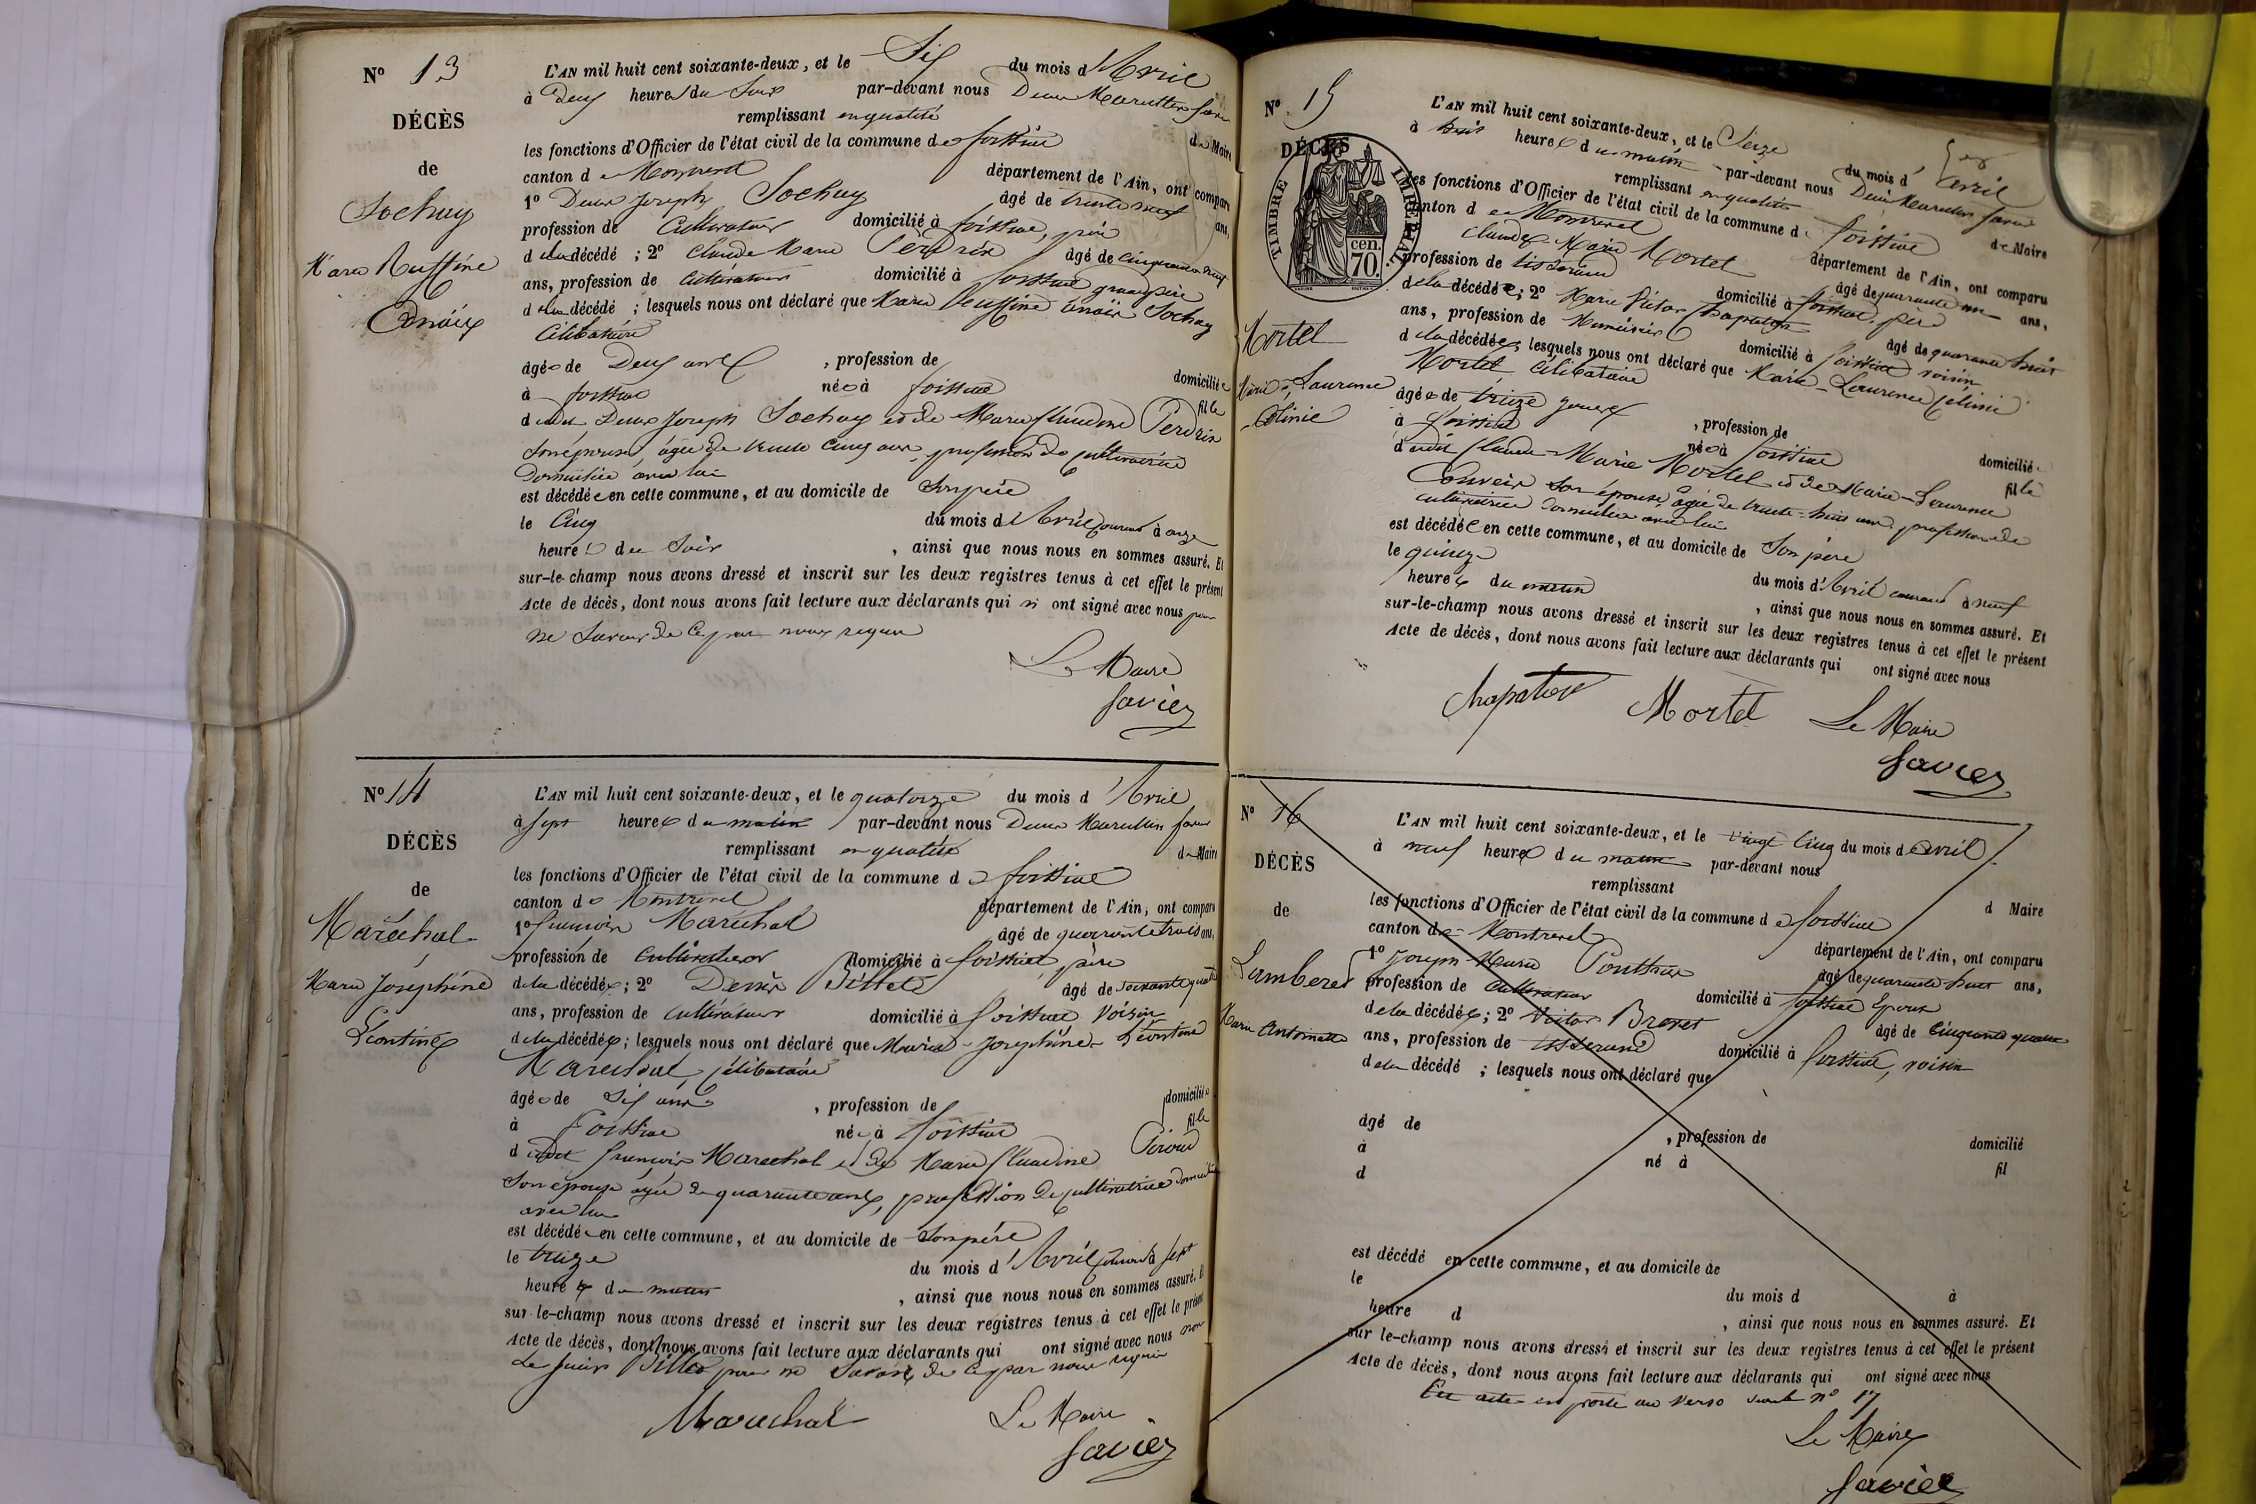 N° 13
DÉCÈS
de
Sochay
Marie Ruffine
L'AN mil huit cent soixante-deux, et le Six du mois d'Avril
à Deux heures du Soir par-devant nous Denis Marcellin favier
remplissant en qualité de Maire
les fonctions d'Officier de l'état civil de la commune de foissiat
canton de Montrevel département de l'Ain, ont comparu
1° Denis Joseph Sochay âgé de trente neuf ans,
profession de Cultivateur domicilié à foissiat, père
de la décédé ; 2° Claude Marie Perdrix âgé de cinquante neuf
ans, profession de cultivateur domicilié à foissiat grand père
de la décédé ; lesquels nous ont déclaré que Marie Ruffine Sochay
Célibataire
âgée de Deux ans , profession de domiciliée
à foissiat née à foissiat fille
dudit Denis Joseph Sochay et de Marie Claudine Perdrix
Son épouse âgée de trente cinq ans, profession de cultivatrice
Domiciliée avec lui
est décédée en cette commune, et au domicile de Son père
le Cinq du mois d'Avril courant à onze
heures du Soir , ainsi que nous nous en sommes assuré. Et
sur-le-champ nous avons dressé et inscrit sur les deux registres tenus à cet effet le présent
Acte de décès, dont nous avons fait lecture aux déclarants qui n' ont signé avec nous pour
ne Savoir de ce par nous requis
Le Maire
favier
N° 14
DÉCÈS
de
Maréchal
Marie Joséphine
Léontine
L'AN mil huit cent soixante-deux, et le quatorze du mois d'Avril
à Sept heures du matin par-devant nous Denis Marcellin favier
remplissant en qualité de Maire
les fonctions d'Officier de l'état civil de la commune de foissiat
canton de Montrevel département de l'Ain, ont comparu
1° françois Maréchal âgé de quarante trois ans,
profession de Cultivateur domicilié à foissiat, père
de la décédée ; 2° Denis Billet âgé de soixante quatre
ans, profession de cultivateur domicilié à foissiat Voisin
de la décédée ; lesquels nous ont déclaré que Marie-Joséphine-Léontine
Maréchal, Célibataire
âgée de Six ans , profession de domiciliée
à foissiat née à foissiat fille
dudit françois Maréchal et de Marie Claudine Piroud
Son épouse âgée de quarante ans, profession de cultivatrice domiciliée
avec lui
est décédée en cette commune, et au domicile de Son père
le treize du mois d'Avril courant à Sept
heures du matin , ainsi que nous nous en sommes assuré. Et
sur le-champ nous avons dressé et inscrit sur les deux registres tenus à cet effet le présent
Acte de décès, dont nous avons fait lecture aux déclarants qui ont signé avec nous non
Billet pour ne Savoir de ce par nous requis
Maréchal Le Maire
favier
N° 15
DÉCÈS
TIMBRE IMPÉRIAL
cen. 70.
Mortel
Marie-Laurence
Célinie
L'AN mil huit cent soixante-deux, et le Seize du mois d'avril
à huit heures du matin par-devant nous Denis Marcellin favier
remplissant en qualité de Maire
les fonctions d'Officier de l'état civil de la commune de foissiat
canton de Montrevel département de l'Ain, ont comparu
Claude-Marie Mortel âgé de quarante un ans,
profession de tisserand domicilié à foissiat, père
de la décédée ; 2° Marie Victor Chapatou âgé de quarante huit
ans, profession de Menuisier domicilié à foissiat voisin
de la décédée ; lesquels nous ont déclaré que Marie-Laurence Célinie
Mortel, Célibataire
âgée de treize jours , profession de domicilié
à foissiat née à foissiat fille
dudit Claude-Marie Mortel et de Marie-Laurence
Son épouse âgée de trente-huit ans, profession de
cultivatrice domiciliée avec lui
est décédée en cette commune, et au domicile de Son père
le quinze du mois d'Avril courant à neuf
heures du matin , ainsi que nous nous en sommes assuré. Et
sur-le-champ nous avons dressé et inscrit sur les deux registres tenus à cet effet le présent
Acte de décès, dont nous avons fait lecture aux déclarants qui ont signé avec nous
Chapatou Mortel Le Maire
favier
N° 16
DÉCÈS
de
Lamberet
Marie Antoinette
L'AN mil huit cent soixante-deux, et le vingt cinq du mois d'avril
à neuf heures du matin par-devant nous
remplissant d Maire
les fonctions d'Officier de l'état civil de la commune de foissiat
canton de Montrevel département de l'Ain, ont comparu
1° Joseph-Marie Ponthus âgé de quarante huit ans,
profession de Cultivateur domicilié à foissiat Epoux
de la décédée ; 2° Victor Brevet âgé de Cinquante quatre
ans, profession de tisserand domicilié à foissiat, voisin
de la décédé ; lesquels nous ont déclaré que
âgé de , profession de domicilié
à né à fil
d
est décédé en cette commune, et au domicile de
le du mois d à
heure d , ainsi que nous nous en sommes assuré. Et
sur le-champ nous avons dressé et inscrit sur les deux registres tenus à cet effet le présent
Acte de décès, dont nous avons fait lecture aux déclarants qui ont signé avec nous
Cet acte est porté au verso sous le n° 17
Le Maire
favier